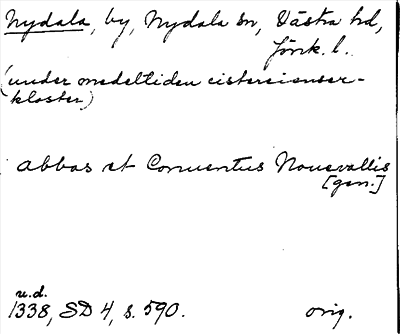 Nydala, by, Nydala sn, Västra hd,
Jönk. l.
(under medeltiden cistercienser-
kloster)
Abbas et Conuentus Nouevallis
[gen.]
u.d.
1338, SD 4, s. 590. orig.